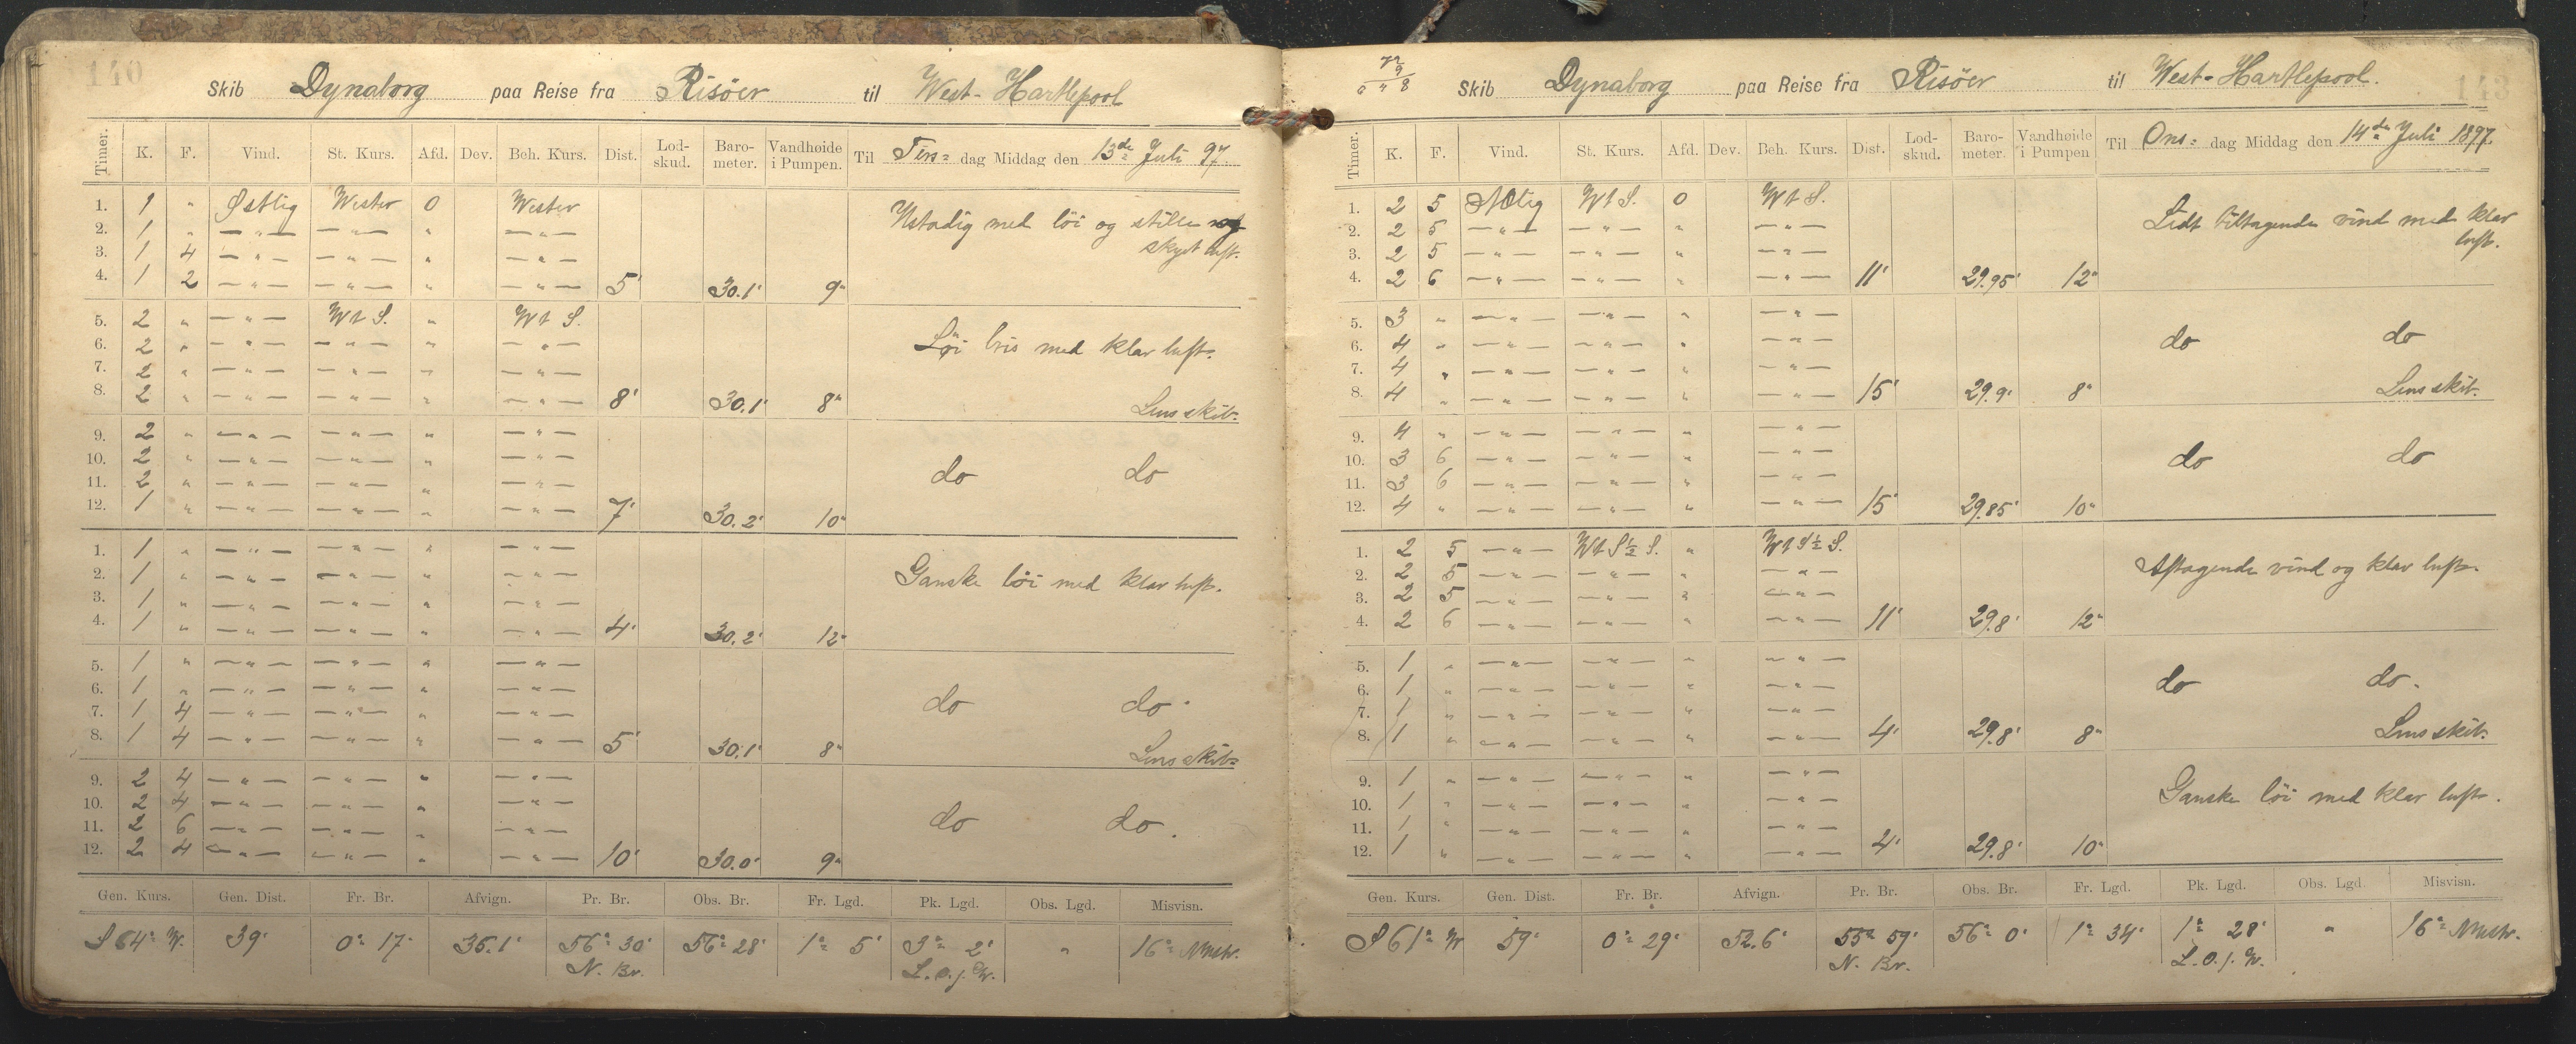 140
Skib Dynaborg paa Reise fra Risöer til West-Hartlepool
Timer. K. F. Vind. St. Kurs. Afd. Dev. Beh. Kurs. Dist. Lod-skud. Baro-meter. Vandhøide i Pumpen. Til Tirs= dag Middag den 13de Juli 97.
1. 1 " Østlig Wester 0 Wester Ustadig med löi og stille og
2. 1 " — " — — " — " — " — skyet luft.
3. 1 4 — " — — " — " — " —
4. 1 2 — " — — " — " — " — 5' 30.1' 9"
5. 2 " — " — Wt S. " Wt S.
6. 2 " — " — — " — " — " — Löi bris med klar luft.
7. 2 " — " — — " — " — " —
8. 2 " — " — — " — " — " — 8' 30.1' 8" Lens skib.
9. 2 " — " — — " — " — " —
10. 2 " — " — — " — " — " — do do
11. 2 " — " — — " — " — " —
12. 1 " — " — — " — " — " — 7' 30.2' 10"
1. 1 " — " — — " — " — " —
2. 1 " — " — — " — " — " — Ganske löi med klar luft.
3. 1 " — " — — " — " — " —
4. 1 " — " — — " — " — " — 4' 30.2' 12"
5. 1 " — " — — " — " — " —
6. 1 " — " — — " — " — " — do do.
7. 1 4 — " — — " — " — " —
8. 1 4 — " — — " — " — " — 5' 30.1' 8" Lens skib.
9. 2 4 — " — — " — " — " —
10. 2 4 — " — — " — " — " — do do.
11. 2 6 — " — — " — " — " —
12. 2 4 — " — — " — " — " — 10' 30.0' 9"
Gen. Kurs. Gen. Dist. Fr. Br. Afvign. Pr. Br. Obs. Br. Fr. Lgd. Pk. Lgd. Obs. Lgd. Misvisn.
S 64° W. 39' 0° 17' 35.1' 56° 30' 56° 28' 1° 5' 3° 2' " 16° NWstr.
N. Br. L.o.f. W.
143
Skib Dynaborg paa Reise fra Risöer til West-Hartlepool.
Timer. K. F. Vind. St. Kurs. Afd. Dev. Beh. Kurs. Dist. Lod-skud. Baro-meter. Vandhøide i Pumpen Til Ons= dag Middag den 14de Juli 1897.
1. 2 5 NOlig Wt S. 0 Wt S. Lidt tiltagende vind med klar
2. 2 5 — " — — " — " — " — luft.
3. 2 5 — " — — " — " — " —
4. 2 6 — " — — " — " — " — 11' 29.95' 12"
5. 3 " — " — — " — " — " —
6. 4 " — " — — " — " — " — do do
7. 4 " — " — — " — " — " —
8. 4 " — " — — " — " — " — 15' 29.9' 8" Lens skib.
9. 4 " — " — — " — " — " —
10. 3 6 — " — — " — " — " — do do
11. 3 6 — " — — " — " — " —
12. 4 " — " — — " — " — " — 15' 29.85' 10"
1. 2 5 — " — Wt S ½ S. " Wt S ½ S.
2. 2 5 — " — — " — " — " — Aftagende vind og klar luft.
3. 2 5 — " — — " — " — " —
4. 2 6 — " — — " — " — " — 11' 29.8' 12"
5. 1 " — " — — " — " — " —
6. 1 " — " — — " — " — " — do do.
7. 1 " — " — — " — " — " —
8. 1 " — " — — " — " — " — 4' 29.8' 8" Lens skib.
9. 1 " — " — — " — " — " —
10. 1 " — " — — " — " — " — Ganske löi med klar luft.
11. 1 " — " — — " — " — " —
12. 1 " — " — — " — " — " — 4' 29.8' 10"
Gen. Kurs. Gen. Dist. Fr. Br. Afvign. Pr. Br. Obs. Br. Fr. Lgd. Pk. Lgd. Obs. Lgd. Misvisn.
S 61° W 59' 0° 29' 52.6' 55° 59' 56° 0' 1° 34' 1° 28' " 16° NWstr.
N. Br. L.o.f. W.